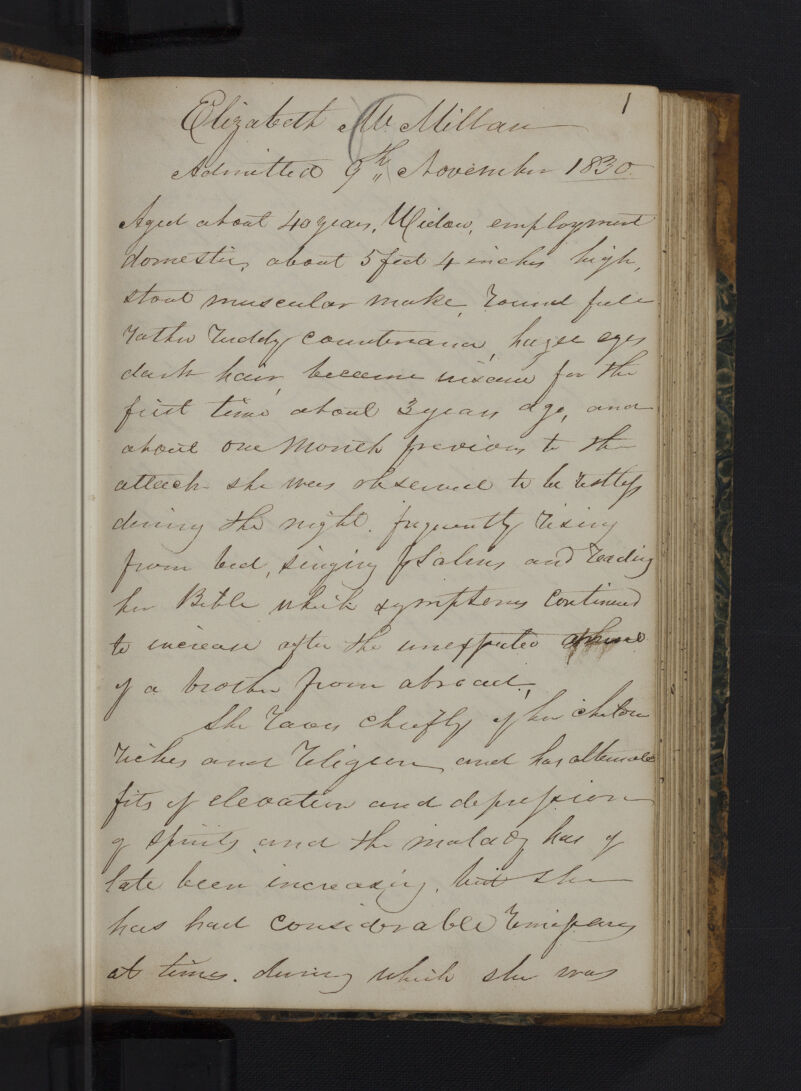 1
Elizabeth Mc Millan
Admitted 9th November 1830.
Aged about 40 years, Widow, employment
domestic, about 5 feet 4 inches high,
stout muscular make, round full
rather ruddy countenance, hazel eyes
dark hair, became insane for the
first time about 3 years ago, and
about one Month previous to the
attack she was observed to be restless
during the night, frequently rising
from bed, singing Psalms and reading
her Bible which symptoms Continued
to increase after the unexpected
of a brother from abroad,
She raves chiefly of her children
riches and religion, and has alternate
fits of elevation and depression
of spirits and the malady has of
late been increasing, but she
has had considerable remissions
at times, during which she was